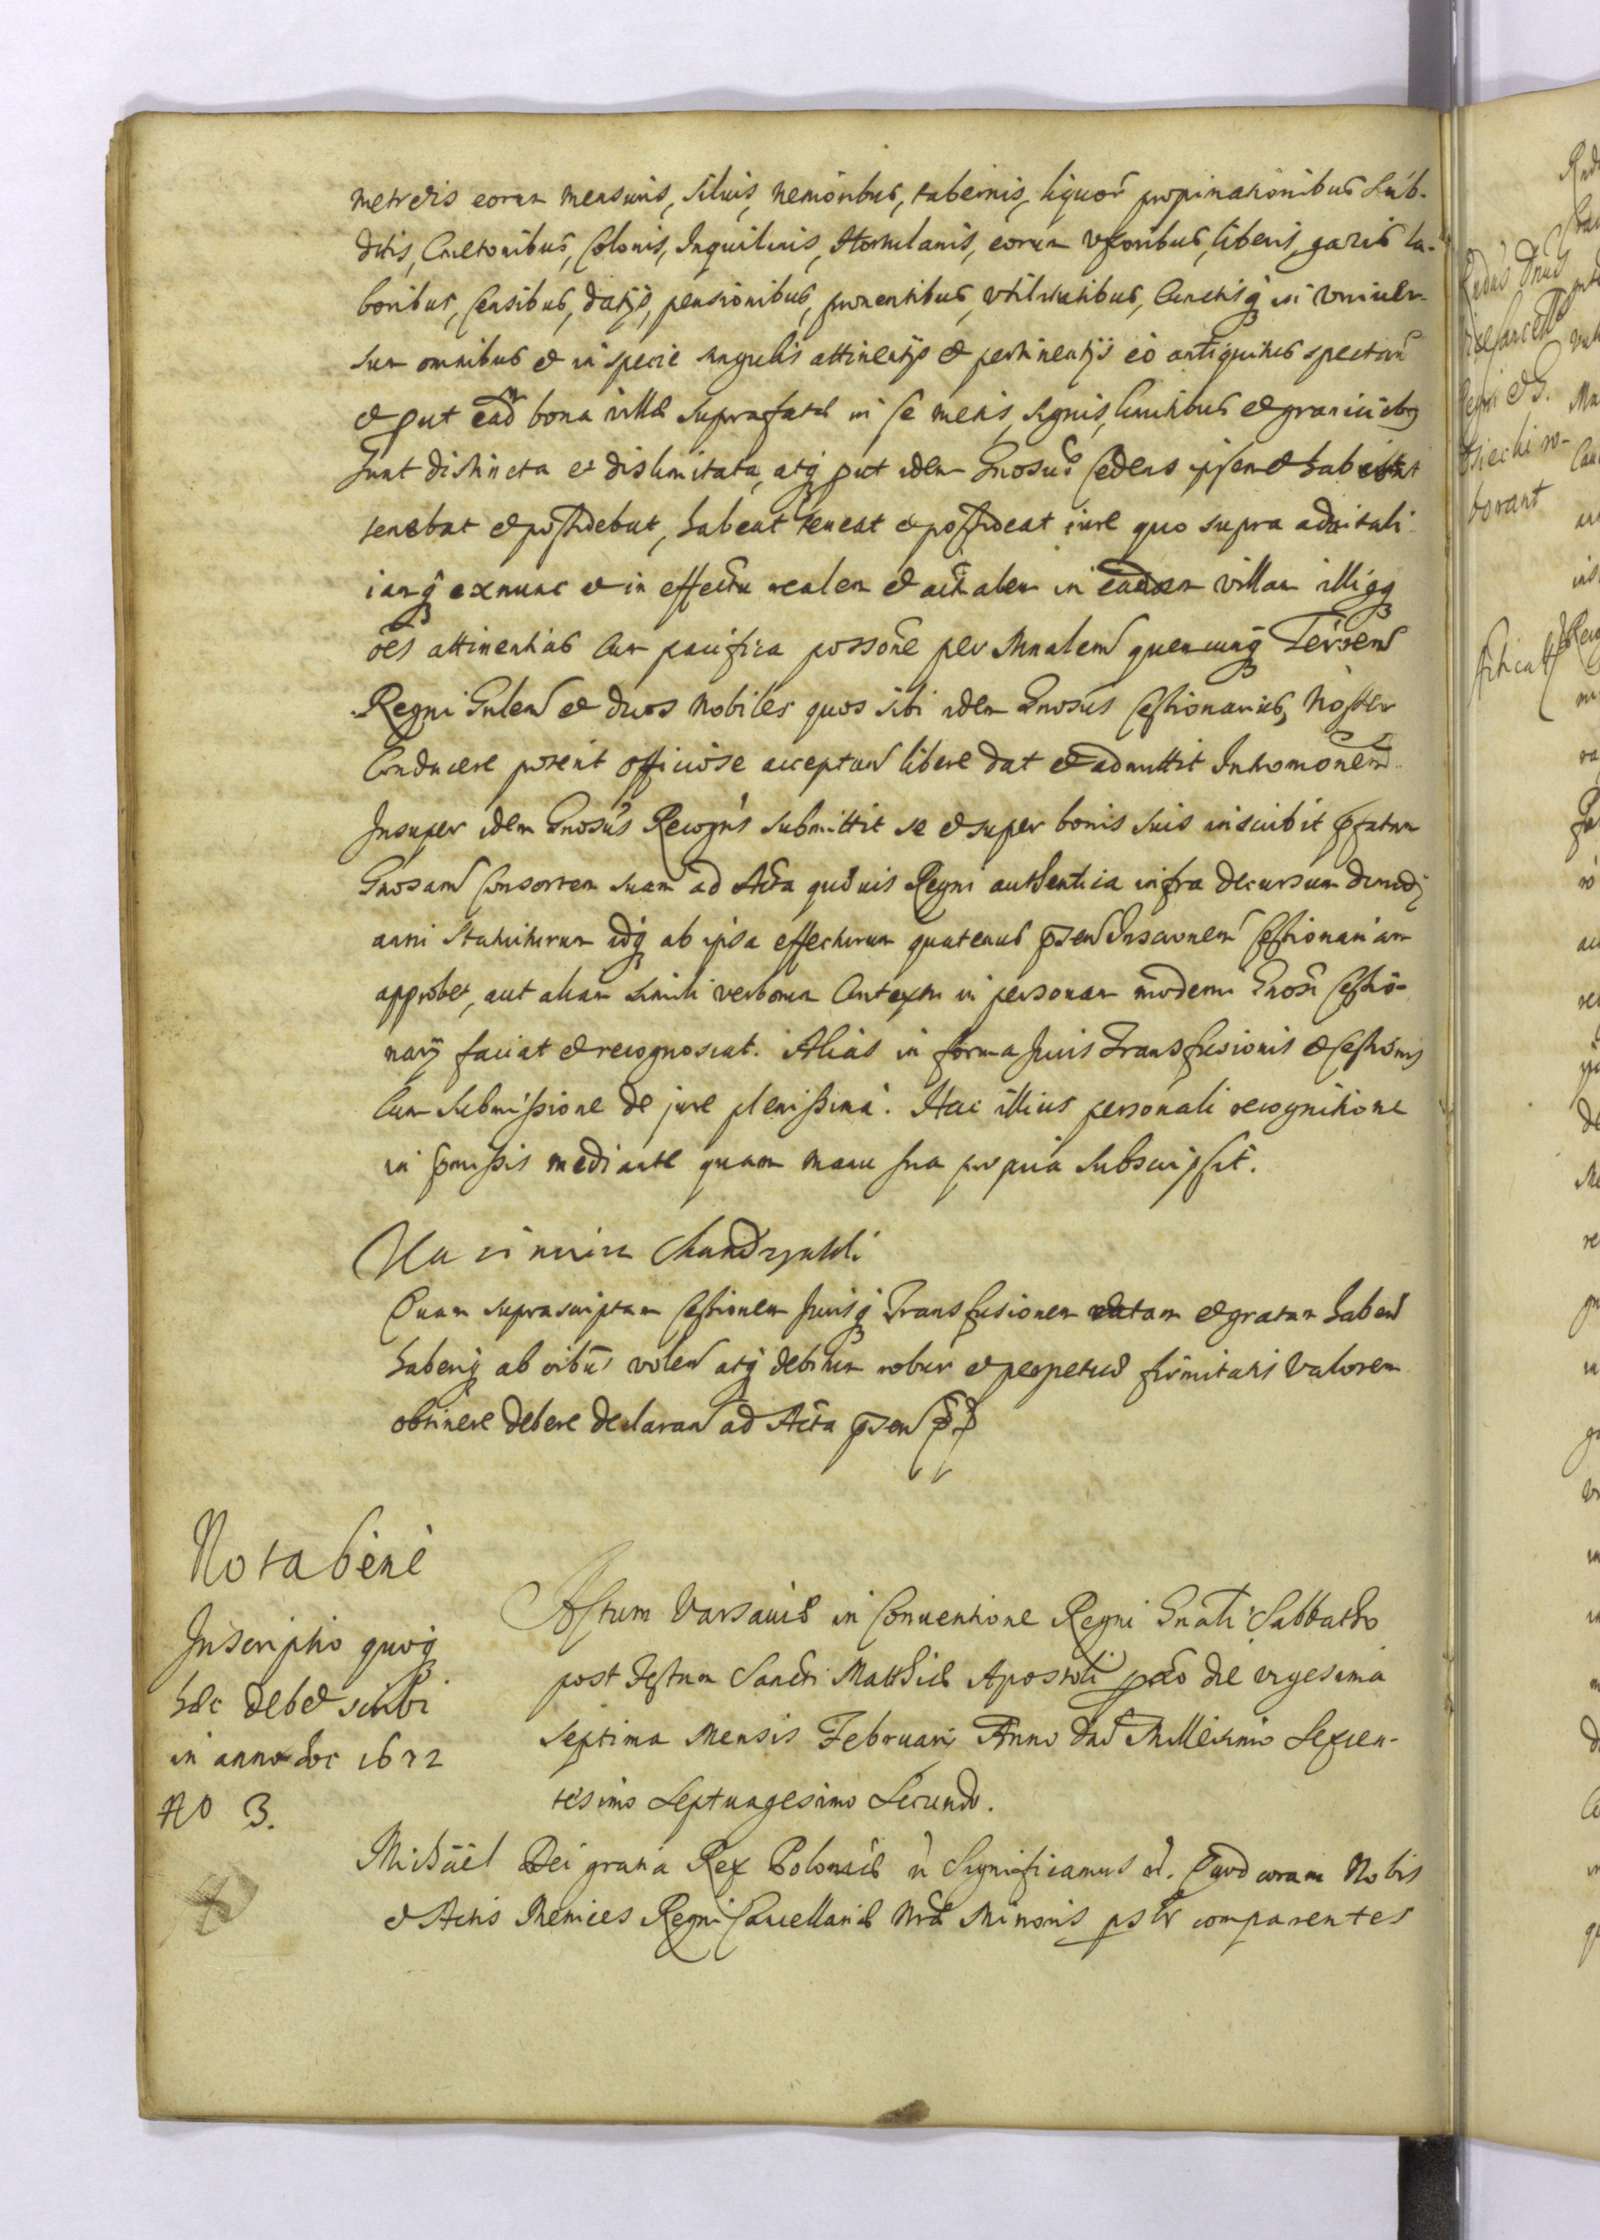 metretis eorum mensuris, siluis, nemoribus, tabernis, liquor propinationibus Sub-
ditis, Cmetonibus, Colonis, Inquilinis, Hortulanis, eorum vxoribus, liberis, gazis la-
boribus, Censibus, datijs, pensionibus, prouentibus, vtilitatibus, Cunctisq in vniuer-
sum omnibus et in specie singulis attinentijs et pertinentijs eo antiquitus spectan
et put ead bona villæ suprafatæ in se metis, signis, limitibus et granicieb9
sunt distincta et dislimitata, atq put idem Gnosus Cedens ipsemet habebat
tenebat et possidebat, habeat teneat et possideat iure quo supra aduitali
iamq exnunc et in effectu realem et actualem in eandem villam illiq
oes attinentias Cum pacifica possone per Mnalem quemcunq Terren
Regni Gnlem et duos Nobiles quos sibi idem Gnosus Cessionarius, Noster
Conducere poterit officiose acceptan libere dat et admittit Intromonem.
Insuper idem Gnosus Recogns submittit se et super bonis suis inscribit pfatam
Gnosam Consortem suam ad Acta quæuis Regni authentica infra decursum dimidij
anni statuiturum idq ab ipsa effecturum quatenus psen Inscronem Cessionariam
approbet, aut aliam simili verborum Contextu in personam moderni Gnosi Cessio-
narij faciat et recognoscat. Alias in forma Juris Transfusionis et Cessionis
Cum submissione de jure plenissima. Hac illius personali recognitione
in pmissis mediante quam manu sua propria subscripsit.
Quam suprascriptam Cessionem Jurisq Transfusionem ratam et gratam haben
haberiq ab oibus volen atq debitum robur et perpetuæ firmitatis valorem
obtinere debere declaran ad Acta psen
Nota bene
Inscriptio quoq
hæc debet scribi
in anno hoc 1672
No 3.
Actum Varsauiæ in Conuentione Regni Gnali Sabbatho
post Festum Sancti Matthiæ Apostoli pxo die vigesima
septima Mensis Februarij Anno Dni Millesimo Sexcen-
tesimo Septuagesimo Secundo.
Michael Dei gratia Rex Poloniæ Significamus Quod coram Nobis
et Actis Metrices Regni Cancellariæ Nræ Minoris comparentes